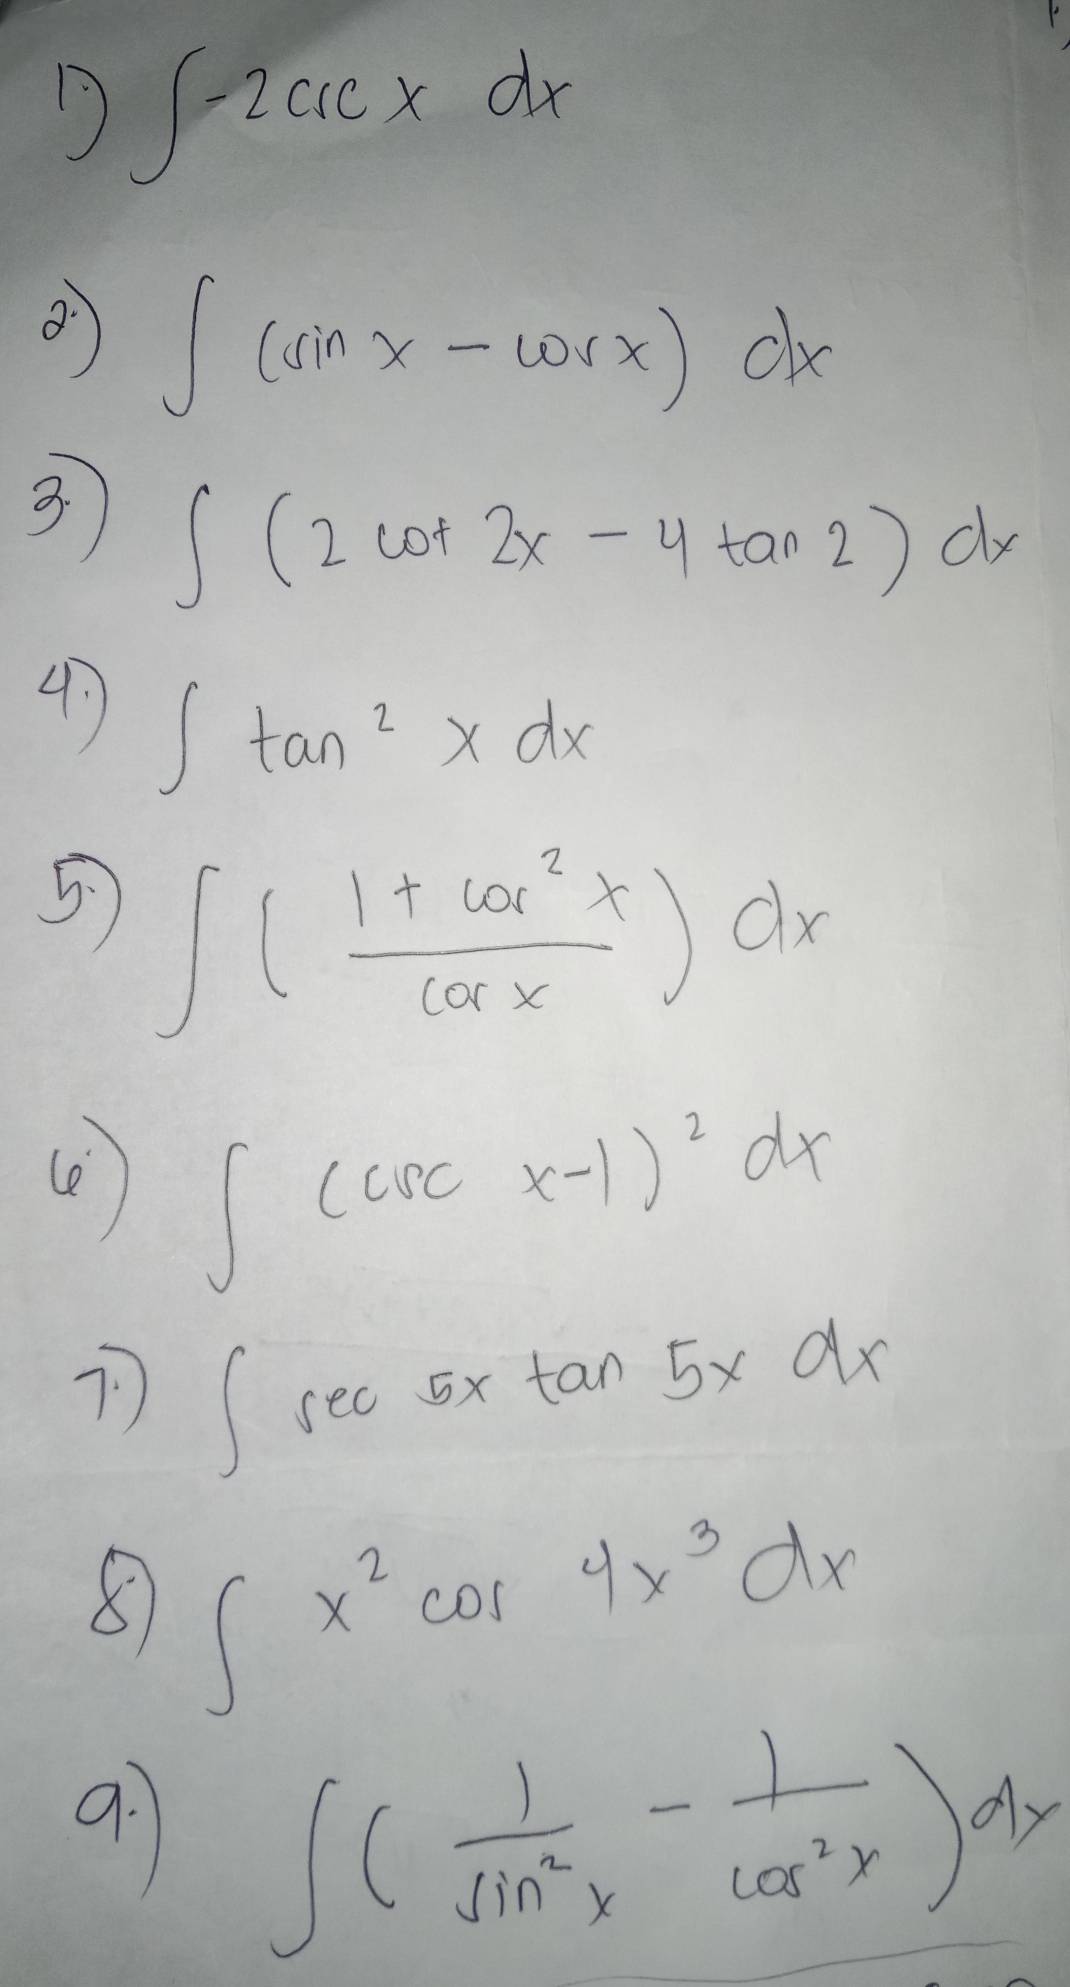 1.) ∫ -2 csc x dx
2.) ∫ (sin x - cos x) dx
3.) ∫ (2 cot 2x - 4 tan 2) dx
4.) ∫ tan² x dx
5.) ∫ ( (1 + cos² x) / (cos x) ) dx
6.) ∫ (csc x-1)² dx
7.) ∫ sec 5x tan 5x dx
8.) ∫ x² cos 4x³ dx
9.) ∫ ( 1 / sin² x - 1 / cos² x ) dx